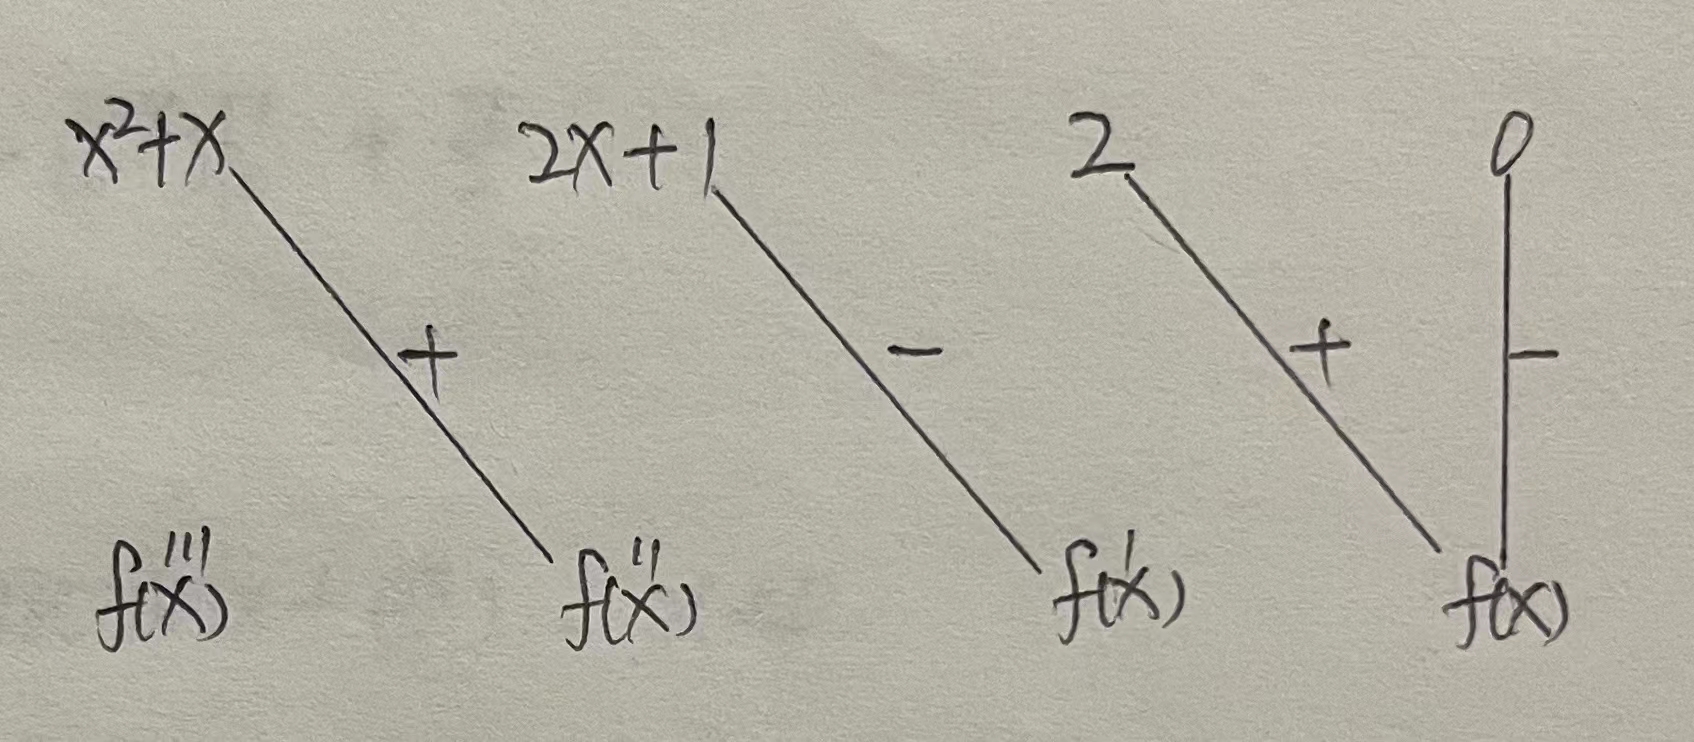 x²+x 2x+1 2 0
+ − + −
f(x)''' f(x)'' f(x)' f(x)